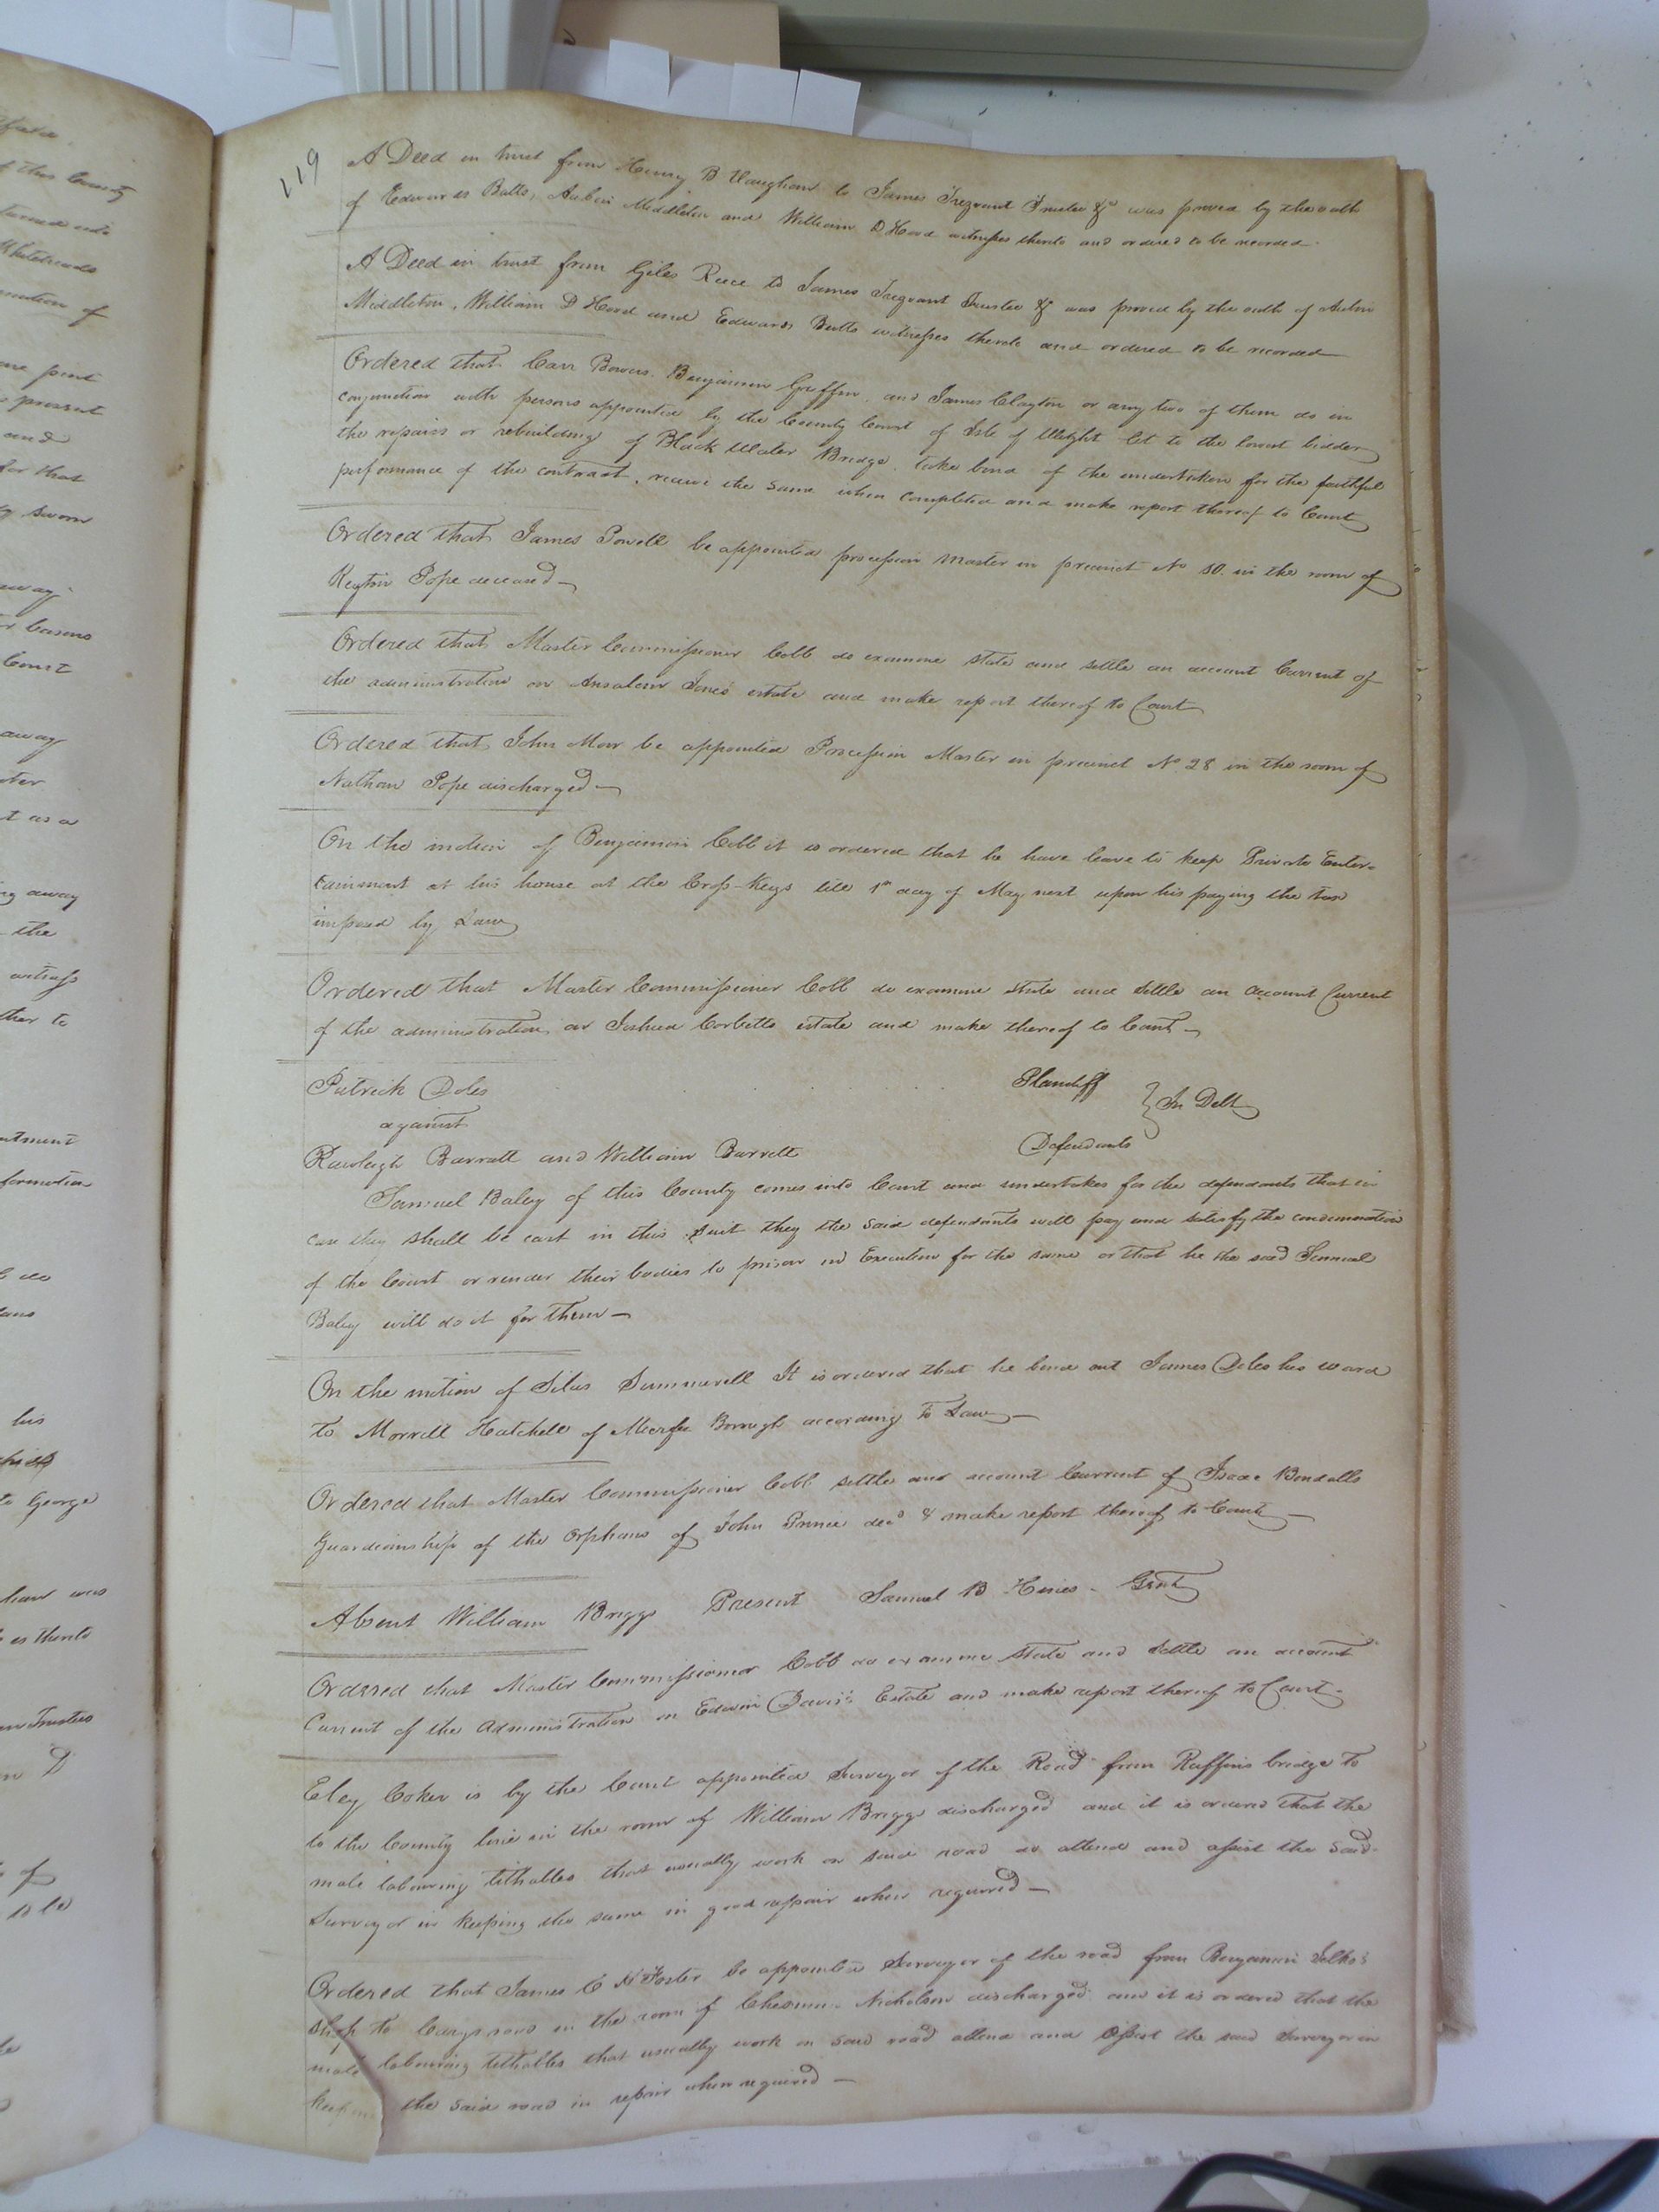 119
A Deed in trust from Henry B Vaughan to James Trezvant Trustee &c was proved by the oath
of Edwards Butts, Aubin Middleton and William D Hood witnesses thereto and ordered to be recorded.
A Deed in trust from Giles Reece to James Trezvant Trustee & was proved by the oath of Aubin
Middleton, William D Hood and Edwards Butts witnesses thereto and ordered to be recorded
Ordered that Carr Bowers. Benjamin Griffin, and James Clayton or any two of them do in
conjunction with persons appointed by the County Court of Isle of Wight let to the lowest bidder
the repairs or rebuilding of Black Water Bridge, take bond of the undertaker for the faithful
performance of the contract, receive the same when completed and make report thereof to Court
Ordered that James Powell be appointed procession master in precinct No 10. in the room of
Pope deceased —
Ordered that Master Commissioner Cobb do examine state and settle an account Current of
the administration on Ansalem Jones estate and make report thereof to Court
Ordered that John be appointed Procession Master in precinct No 28 in the room of
Nathan Pope discharged —
On the motion of Benjamin Cobb it is ordered that he have leave to keep Private Enter-
tainment at his house at the Cross-Keys till 1st day of May next upon his paying the tax
imposed by Law
Ordered that Master Commissioner Cobb do examine state and settle an account Current
of the administration on Joshua Corbetts estate and make thereof to Court —
Patrick Doles Plaintiff
against } In Debt
Rawleigh Barratt and William Barrett Defendants
Samuel Baley of this County comes into Court and undertakes for the defendants that in
case they shall be cast in this suit they the said defendants will pay and satisfy the condemnation
of the Court or render their bodies to prison in Execution for the same or that he the said Samuel
Baley will do it for them —
On the motion of Silas Summerell It is ordered that he bind out James Doles his ward
to Morrell Hatchell of Borough according to Law —
Ordered that Master Commissioner Cobb settle and account Current of Isaac Bendalls
Guardianship of the Orphans of John Prince decd & make report thereof to Court —
Absent William Briggs Present Samuel B Hines - Gent
Ordered that Master Commissioner Cobb do examine state and settle an account
Current of the administration on Edwin Davis's Estate and make report thereof to Court -
Eley Coker is by the Court appointed Surveyor of the Road from Ruffins bridge to
to the County line in the room of William Briggs discharged and it is ordered that the
male labouring tithables that usually work on said road do attend and assist the said
Surveyor in keeping the same in good repair when required —
Ordered that James C N Foster be appointed Surveyor of the road from Benjamin
shop to road in the room of Nicholson discharged and it is ordered that the
male labouring tithables that usually work on said road attend and assist the said Surveyor in
keeping the said road in repair when required —